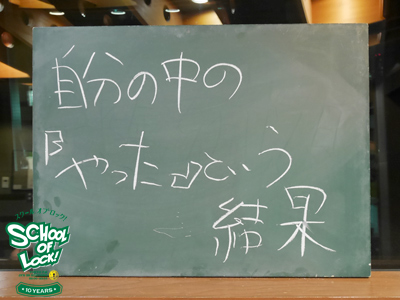 自分の中の
『やった』という
結果
スクールオブロック!
SCHOOL
OF
LOCK!
10 YEARS